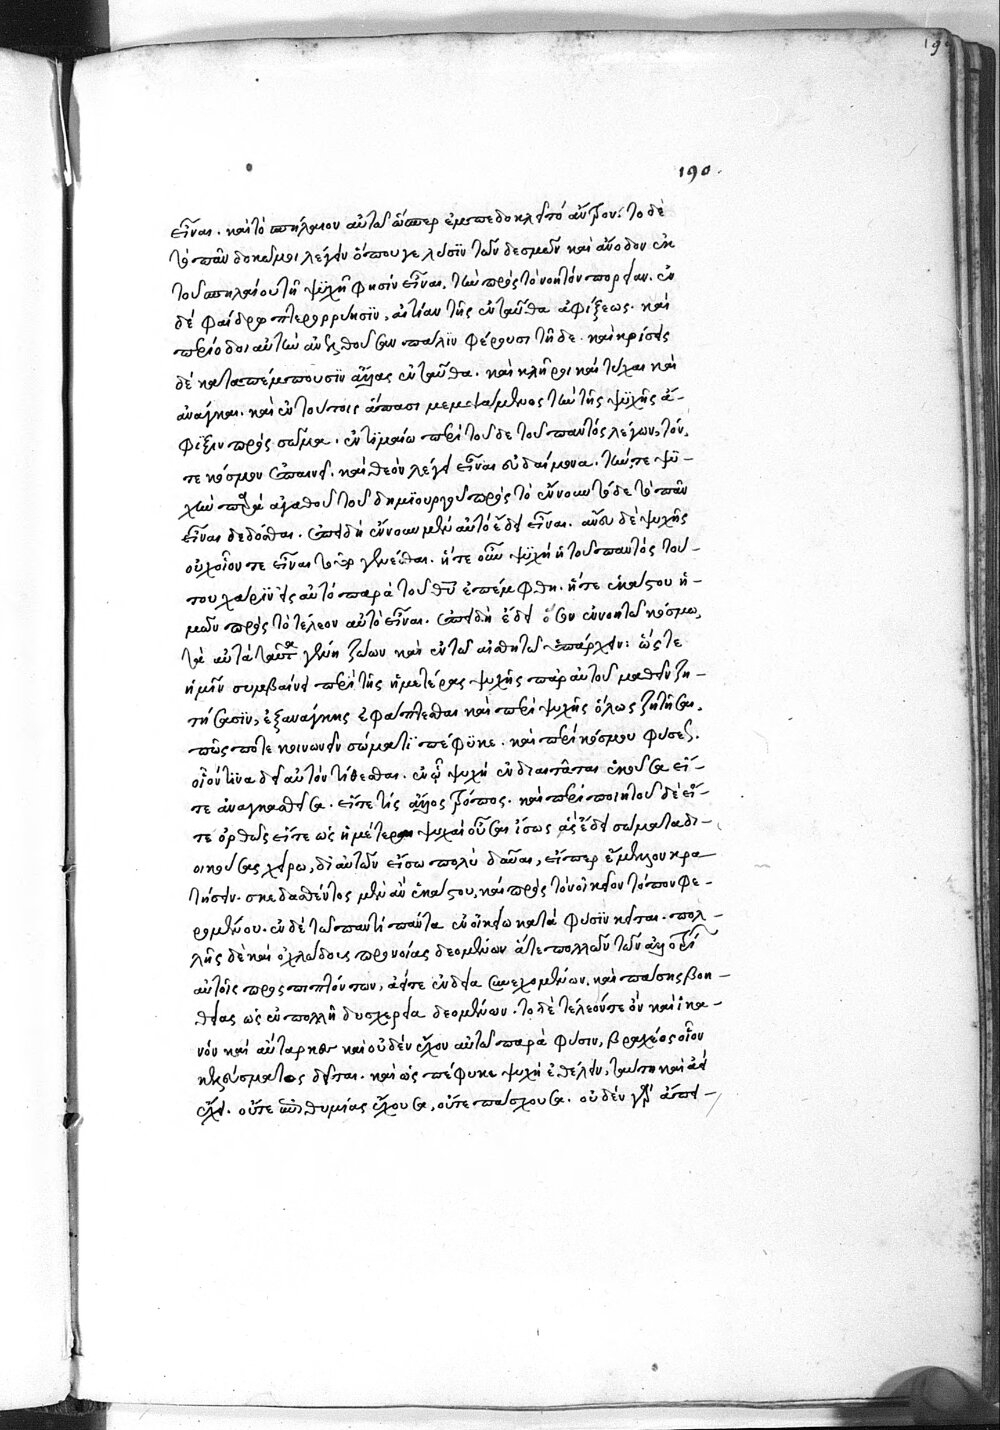 190.
εἶναι. καὶ τὸ σπήλαιον αὐτῶ ὥσπερ ἐμπεδοκλεῖ τὸ ἄντρον. τὸ δὲ
τὸ πᾶν δοκεῖ μοι λέγειν ὅπου γε λύσϊν τῶν δεσμῶν καὶ ἄνοδον ἐκ
τοῦ σπηλαίου τῆ ψϋχῆ φησὶν εἶναι, τὴν πρὸς τὸ νοητὸν πορείαν. ἐν
δὲ φαίδρω πτερορρύησϊν, αἰτίαν τῆς ἐνταῦθα ἀφίξεως. καὶ
περίοδοι αὐτὴν ἀνελθοῦσαν πάλϊν φέρουσι τῆ δε. καὶ κρίσεις
δὲ καταπέμπουσϊν ἄλλας ἐνταῦθα. καὶ κλῆροι καὶ τύχαι καὶ
ἀνάγκαι. καὶ ἐν τούτοις ἅπασι μεμψάμενος τὴν τῆς ψϋχῆς ἄ-
φϊξιν πρὸς σῶμα. ἐν τϊμαίω περὶ τοῦδε τοῦ παντὸς λέγων, τόν,
τε κόσμον ἐπαινεῖ. καὶ θεὸν λέγει εἶναι εὐδαίμονα. τήν, τε ψϋ-
χὴν παρὰ ἀγαθοῦ τοῦ δημϊουργοῦ πρὸς τὸ ἔννουν τόδε τὸ πᾶν
εἶναι δεδόσθαι. ἐπειδὴ ἔννουν μὲν αὐτὸ ἔδει εἶναι. ἄνευ δὲ ψυχῆς
οὐχ οἷόν τε εἶναι τοῦτο γενέσθαι. ἥ τε οὖν ψϋχὴ ἡ τοῦ παντὸς τού-
του χάρϊν εἰς αὐτὸ παρὰ τοῦ θεοῦ ἐπέμφθη. ἥ τε ἑκάστου ἡ-
μῶν πρὸς τὸ τέλεον αὐτὸ εἶναι. ἐπειδὴ ἔδει ὅσα ἐν νοητῶ κόσμω,
τὰ αὐτὰ ταῦτα γένη ζώων καὶ ἐν τῶ αἰσθητῶ ὑπάρχειν: ὥς τε
ἡμῖν συμβαίνει περὶ τῆς ἡμετέρας ψυχῆς παρ' αὐτοῦ μαθεῖν ζη-
τήσασϊν, ἐξανάγκης ἐφάπτεσθαι καὶ περὶ ψυχῆς ὅλως ζητῆσαι.
πῶς ποτε κοινωνεῖν σώματϊ πέφϋκε. καὶ περὶ κόσμου φύσεως.
οἷόν τϊνα δεῖ αὐτὸν τίθεσθαι. ἐν ᾧ ψυχὴ ἐνδιαιτᾶται ἑκοῦσα εἴ-
τε ἀναγκασθεῖσα. εἴτε τίς ἄλλος τρόπος. καὶ περὶ ποιητοῦ δὲ εἴ-
τε ὀρθῶς εἴτε ὡς ἡμέτεραι ψυχαὶ οὖσαι ἴσως ἃς ἔδει σώματα δι-
οικούσας χείρω, δι' αὐτῶν εἴσω πολὺ δῦναι, εἴπερ ἔμελλον κρα-
τήσειν. σκεδασθέντος μὲν ἂν ἑκάστου, καὶ πρὸς τὸν οἰκεῖον τόπον φε-
ρομένου. ἐν δὲ τῶ παντὶ πάντα ἐν οἰκείω κατὰ φύσϊν κεῖται. πολ-
λῆς δὲ καὶ ὀχλώδους προνοίας δεομένων ἅτε πολλῶν τῶν ἀλλοτρί
αὐτοῖς προσπιπτόντων, ἀεί τε ἐνδεία συνεχομένων. καὶ πάσης βοη-
θείας ὡς ἐν πολλῆ δυσχερεία δεομένων. τὸ δὲ τέλεόν τε ὂν καὶ ἱκα-
νὸν καὶ αὔταρκες καὶ οὐδὲν ἔχον αὐτῶ παρὰ φύσιν, βραχέος οἷον
κελεύσματος δεῖται. καὶ ὡς πέφυκε ψυχὴ ἐθέλειν, ταύτη καὶ ἀεὶ
ἔχει. οὔτε ἐπιθυμίας ἔχουσα, οὔτε πάσχουσα. οὐδὲν γὰρ ἄπει-